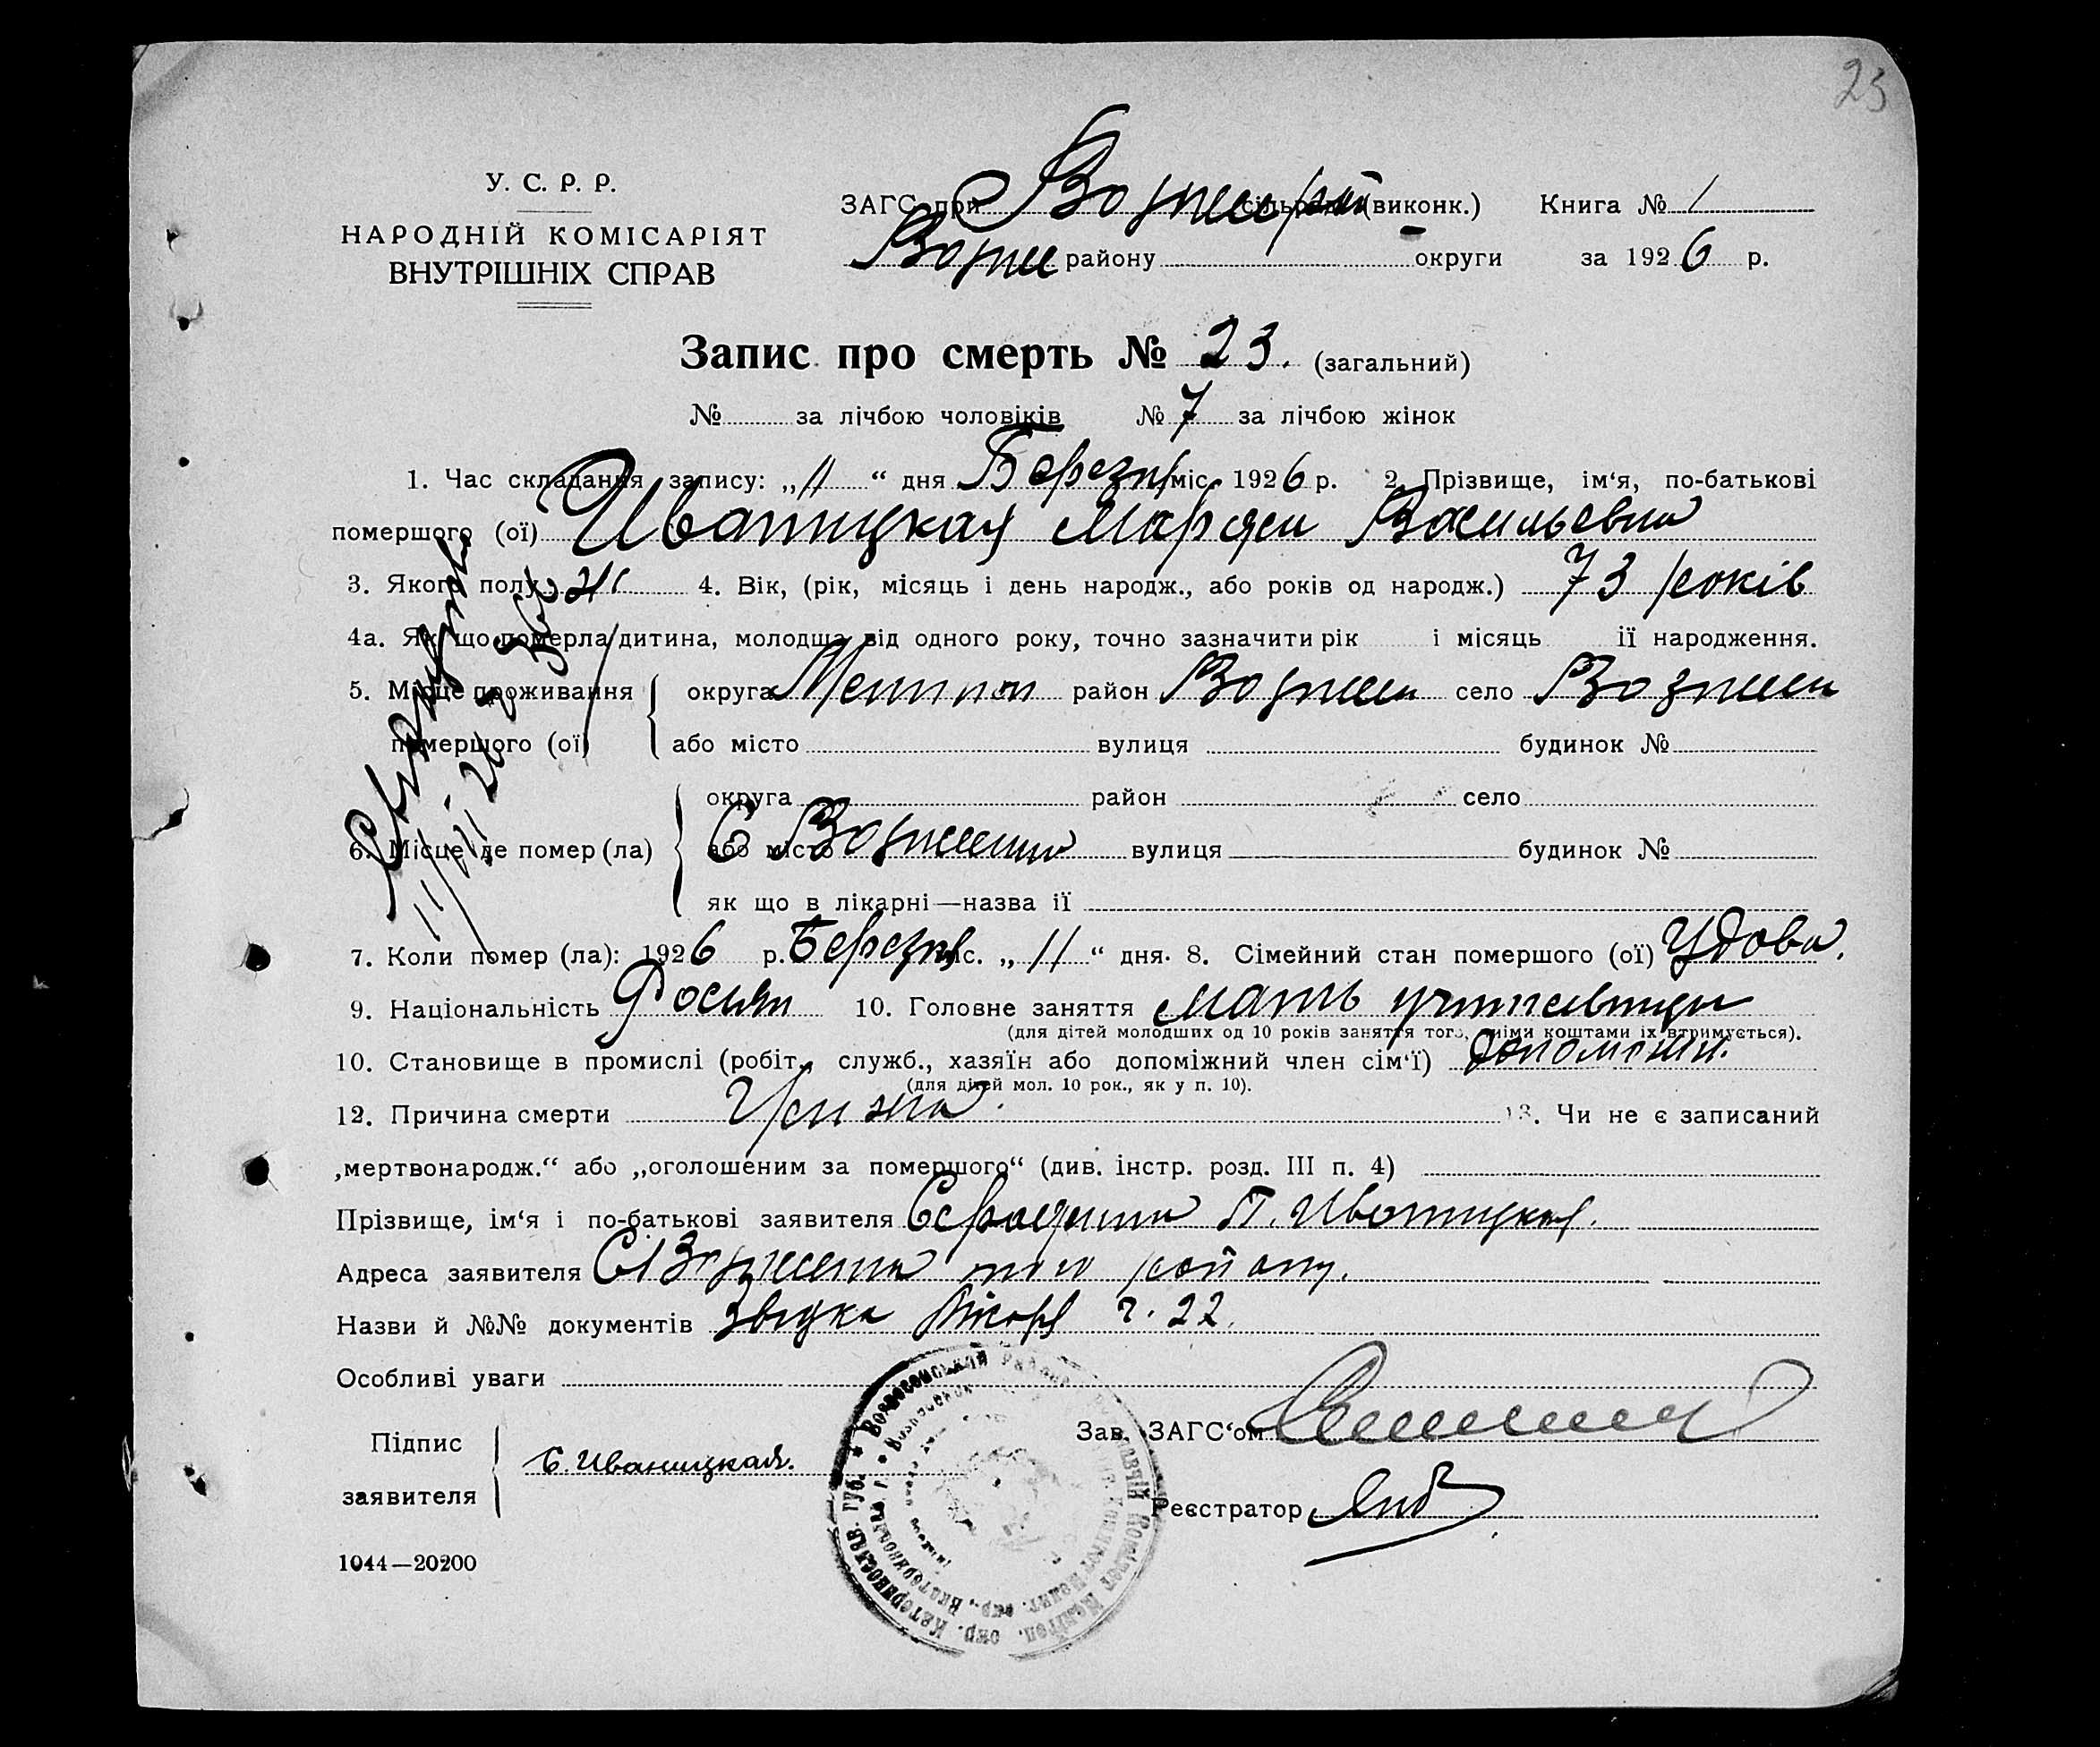 23
У. С. Р. Р.
НАРОДНІЙ КОМІСАРІЯТ
ВНУТРІШНІХ СПРАВ
ЗАГС при сільраді (виконк.) Книга № 1
Вознес району округи за 1926 р.
Запис про смерть № 23. (загальний)
№ за лічбою чоловіків № 7 за лічбою жінок
1. Час складання запису: „11“ дня Березня міс. 1926 р. 2. Прізвище, ім‘я, по-батькові
помершого (ої) Иваницкая Васильевна
3. Якого полу ж 4. Вік, (рік, місяць і день народж., або років од народж.) 73 років
4а. Як що померла дитина, молодша від одного року, точно зазначити рік і місяць її народження.
5. Місце проживання округа район Вознесен село Вознесен
помершого (ої) або місто вулиця будинок №
округа район село
6. Місце де помер (ла) або місто С Вознесенка вулиця будинок №
як що в лікарні—назва її
7. Коли помер (ла): 1926 р. Березня міс. „11“ дня. 8. Сімейний стан помершого (ої) Удова.
9. Національність Росіян 10. Головне заняття мать учительницы
(для дітей молодших од 10 років заняття того, чиїми коштами їх втримується).
10. Становище в промислі (робіт., служб., хазяїн або допоміжний член сім‘ї) допоміжн.
(для дітей мол. 10 рок., як у п. 10).
12. Причина смерти 13. Чи не є записаний
„мертвонародж.“ або „оголошеним за помершого“ (див. інстр. розд. III п. 4)
Прізвище, ім‘я і по-батькові заявителя П. Иваницкая.
Адреса заявителя С Вознесенка того району.
Назви й №№ документів ч. 22.
Особливі уваги
Підпис
заявителя Е. Иваницкая.
Зав. ЗАГС‘ом
Реєстратор
1044—20200